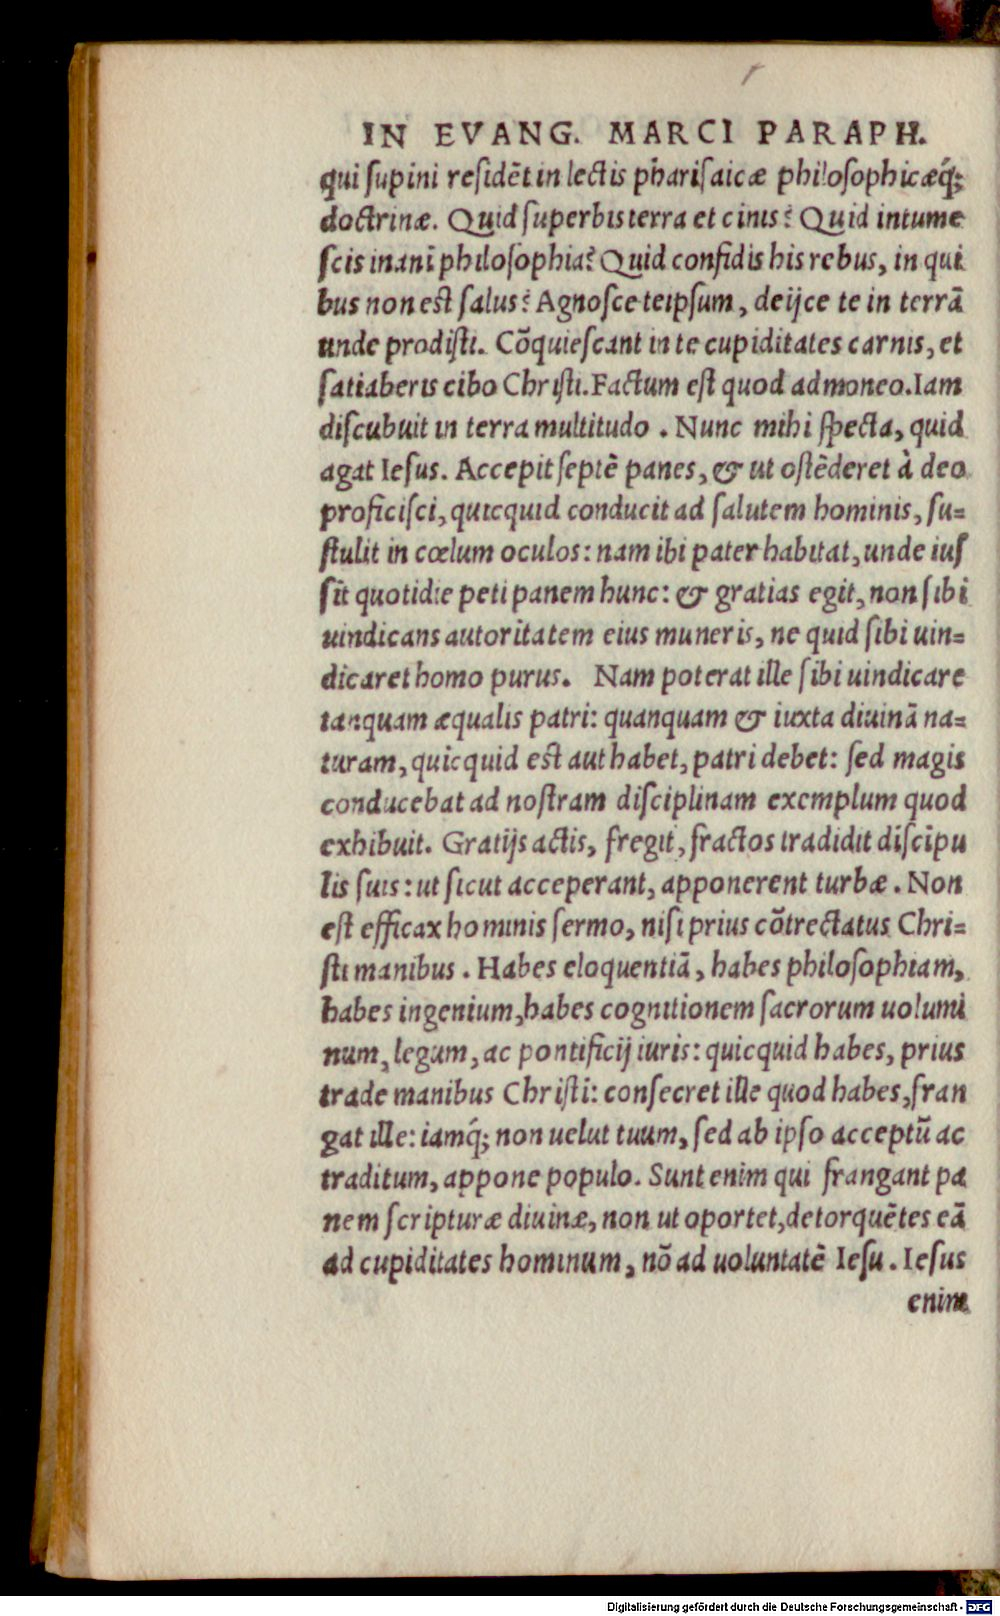 IN EVANG. MARCI PARAPH.
qui ſupini reſidēt in lectis phariſaicæ philoſophicæq́;
doctrinæ. Quid ſuperbis terra et cinis? Quid intume
ſcis inani philoſophia? Quid confidis his rebus, in qui
bus non est ſalus? Agnoſce teipſum, deijce te in terrā
unde prodiſti. Cōquieſcant in te cupiditates carnis, et
ſatiaberis cibo Chriſti. Factum eſt quod admoneo. Iam
diſcubuit in terra multitudo. Nunc mihi ſpecta, quid
agat Ieſus. Accepit ſeptē panes, & ut oſtēderet à deo
proficiſci, quicquid conducit ad ſalutem hominis, ſu=
ſtulit in cœlum oculos: nam ibi pater habitat, unde iuſ
ſit quotidie peti panem hunc: & gratias egit, non ſibi
uindicans autoritatem eius muneris, ne quid ſibi uin=
dicaret homo purus. Nam poterat ille ſibi uindicare
tanquam æqualis patri: quanquam & iuxta diuinā na=
turam, quicquid est aut habet, patri debet: ſed magis
conducebat ad noſtram diſciplinam exemplum quod
exhibuit. Gratijs actis, fregit, fractos tradidit diſcipu
lis ſuis: ut ſicut acceperant, apponerent turbæ. Non
eſt efficax hominis ſermo, niſi prius cōtrectatus Chri=
ſti manibus. Habes eloquentiā, habes philoſophiam,
habes ingenium, habes cognitionem ſacrorum uolumi
num, legum, ac pontificij iuris: quicquid habes, prius
trade manibus Chriſti: conſecret ille quod habes, fran
gat ille: iamq́; non uelut tuum, ſed ab ipſo acceptū ac
traditum, appone populo. Sunt enim qui frangant pa
nem ſcripturæ diuinæ, non ut oportet, detorquētes eā
ad cupiditates hominum, nō ad uoluntatē Ieſu. Ieſus
enim
Digitalisierung gefördert durch die Deutsche Forschungsgemeinschaft - DFG